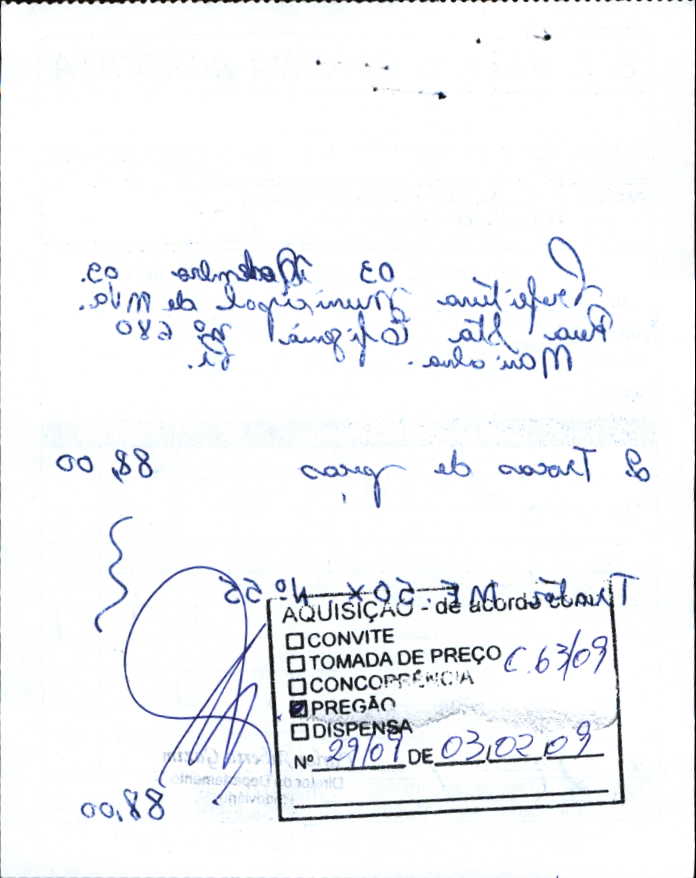 03 Novembro 09.
Prefeitura Municipal de Mva.
Rua Sta Efigenia nº 680
Marialva. Pr.
2 Trocas de peças 88,00
Trator M.F. 50X Nº 55
AQUISIÇÃO - de acordo com
CONVITE
TOMADA DE PREÇO C. 63/09
CONCORRÊNCIA
PREGÃO
DISPENSA
Nº 29/09 DE 03/02/09
Diretor do Departamento
Rodoviário
88,00